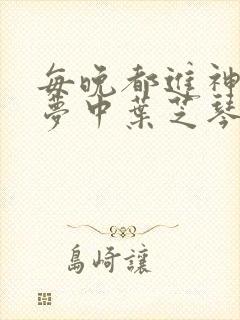 每晚都進神
夢中葉芝琴
島崎讓